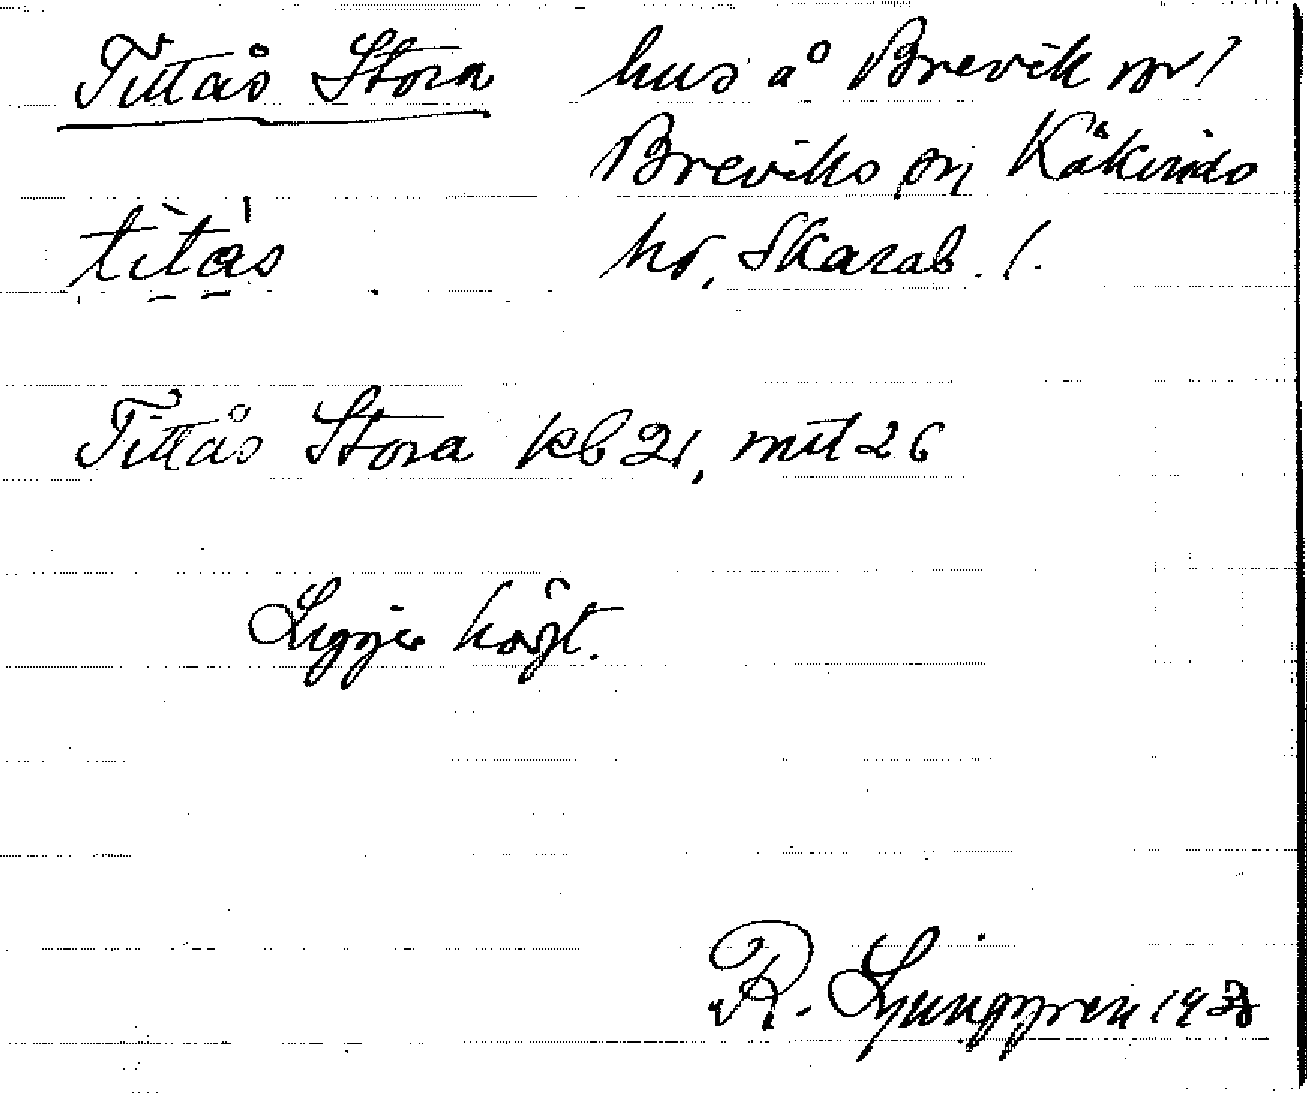 Tittås Stora hus å Brevik nr 1
Breviks sn Kåkinds
titås hd, Skarab. l.
Tittås Stora kb 21, mtl 26
Ligger högt.
R. Ljunggren